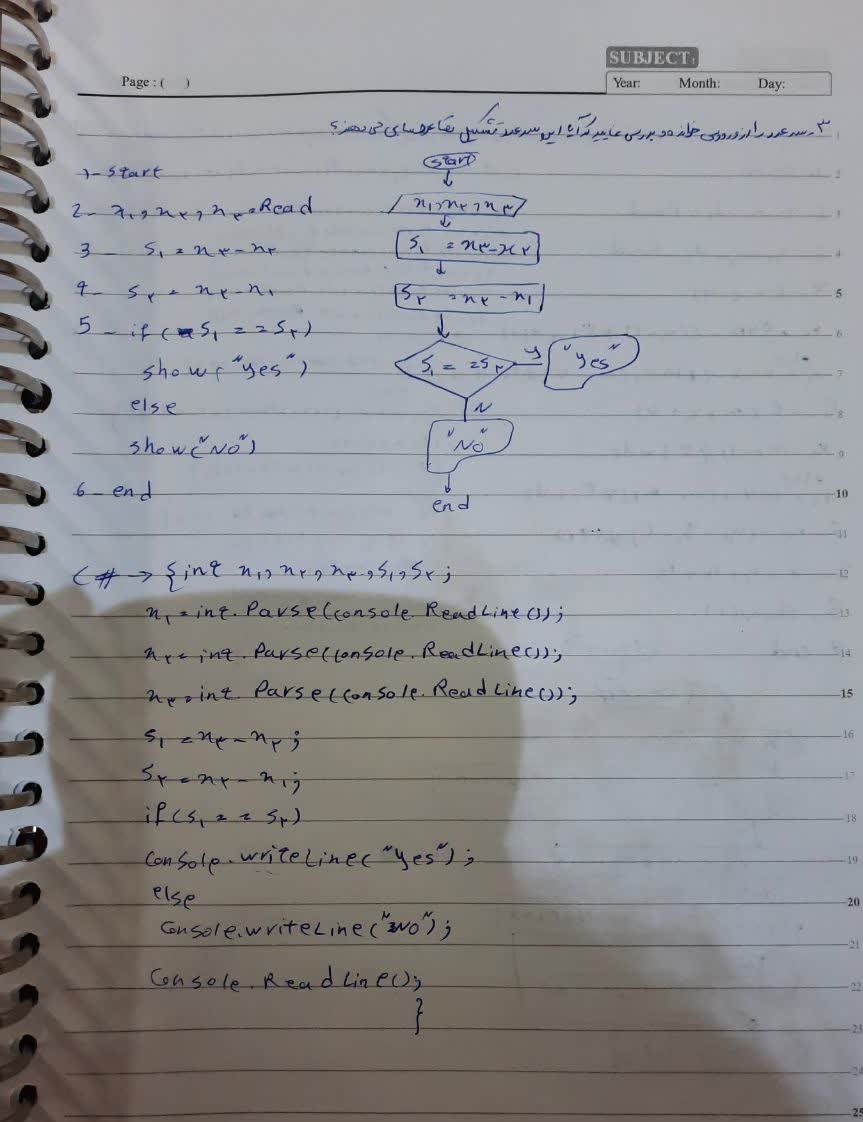 SUBJECT:
Page : ( )
Year: Month: Day:
۳- سه عدد را از ورودی خوانده و بررسی نمایید که آیا این سه عدد تشکیل تصاعد حسابی می دهند؟
1- Start
2- x₁, x₂, x₃ = Read
3- S₁ = x₃ - x₂
4- S₂ = x₂ - x₁
5- if (S₁ == S₂)
show("yes")
else
show("No")
6- end
Start
x₁, x₂, x₃
S₁ = x₃ - x₂
S₂ = x₂ - x₁
S₁ == S₂
y
"yes"
N
"No"
end
C# → {int x₁, x₂, x₃, S₁, S₂;
x₁ = int.Parse(Console.ReadLine());
x₂ = int.Parse(Console.ReadLine());
x₃ = int.Parse(Console.ReadLine());
S₁ = x₃ - x₂;
S₂ = x₂ - x₁;
if (S₁ == S₂)
Console.writeLine("yes");
else
Console.writeLine("No");
Console.ReadLine();
}
1
2
3
4
5
6
7
8
9
10
11
12
13
14
15
16
17
18
19
20
21
22
23
24
25